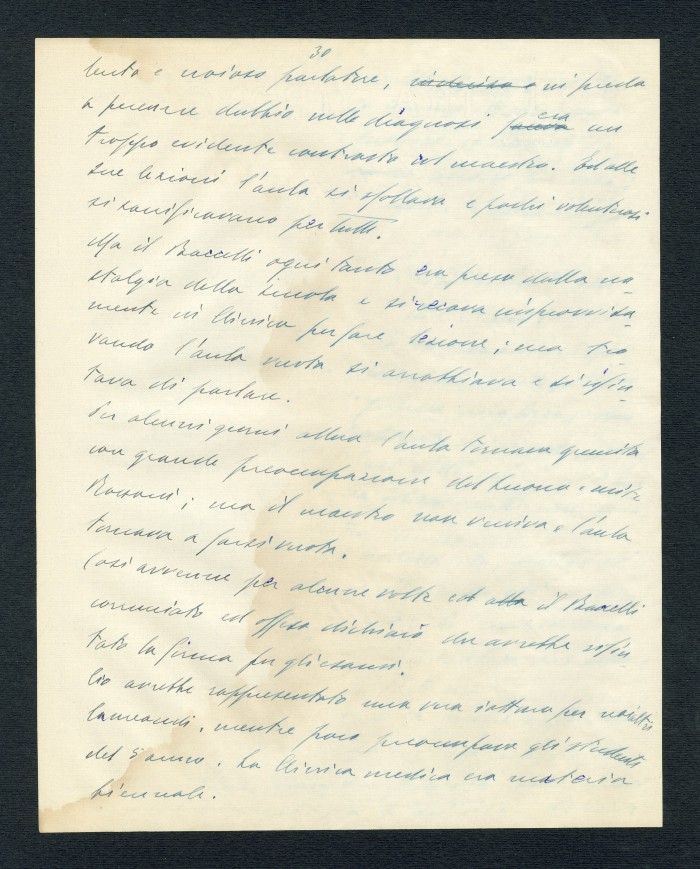 30
lento e noioso parlatore, indeciso e in preda
a perenne dubbio nelle diagnosi faceva era un
troppo evidente contrasto col maestro. Ed alle
sue lezioni l'aula si sfollava e pochi volenterosi
si sacrificavano per tutti.
Ma il Baccelli ogni tanto era preso dalla no-
stalgia della scuola e si recava improvvisa-
mente in Clinica per fare lezione; ma tro-
vando l'aula vuota si arrabbiava e si rifiu-
tava di parlare.
Per alcuni giorni allora l'aula tornava gremita
con grande preoccupazione del buono e mite
Rossoni; ma il maestro non veniva e l'aula
tornava a farsi vuota.
Così avvenne per alcune volte ed alla il Baccelli
corrucciato ed offeso dichiarò che avrebbe rifiu-
tato la firma per gli esami.
Ciò avrebbe rappresentato una vera iattura per noialtri
laureandi, mentre poco preoccupava gli studenti
del 5° anno. La Clinica medica era materia
biennale.